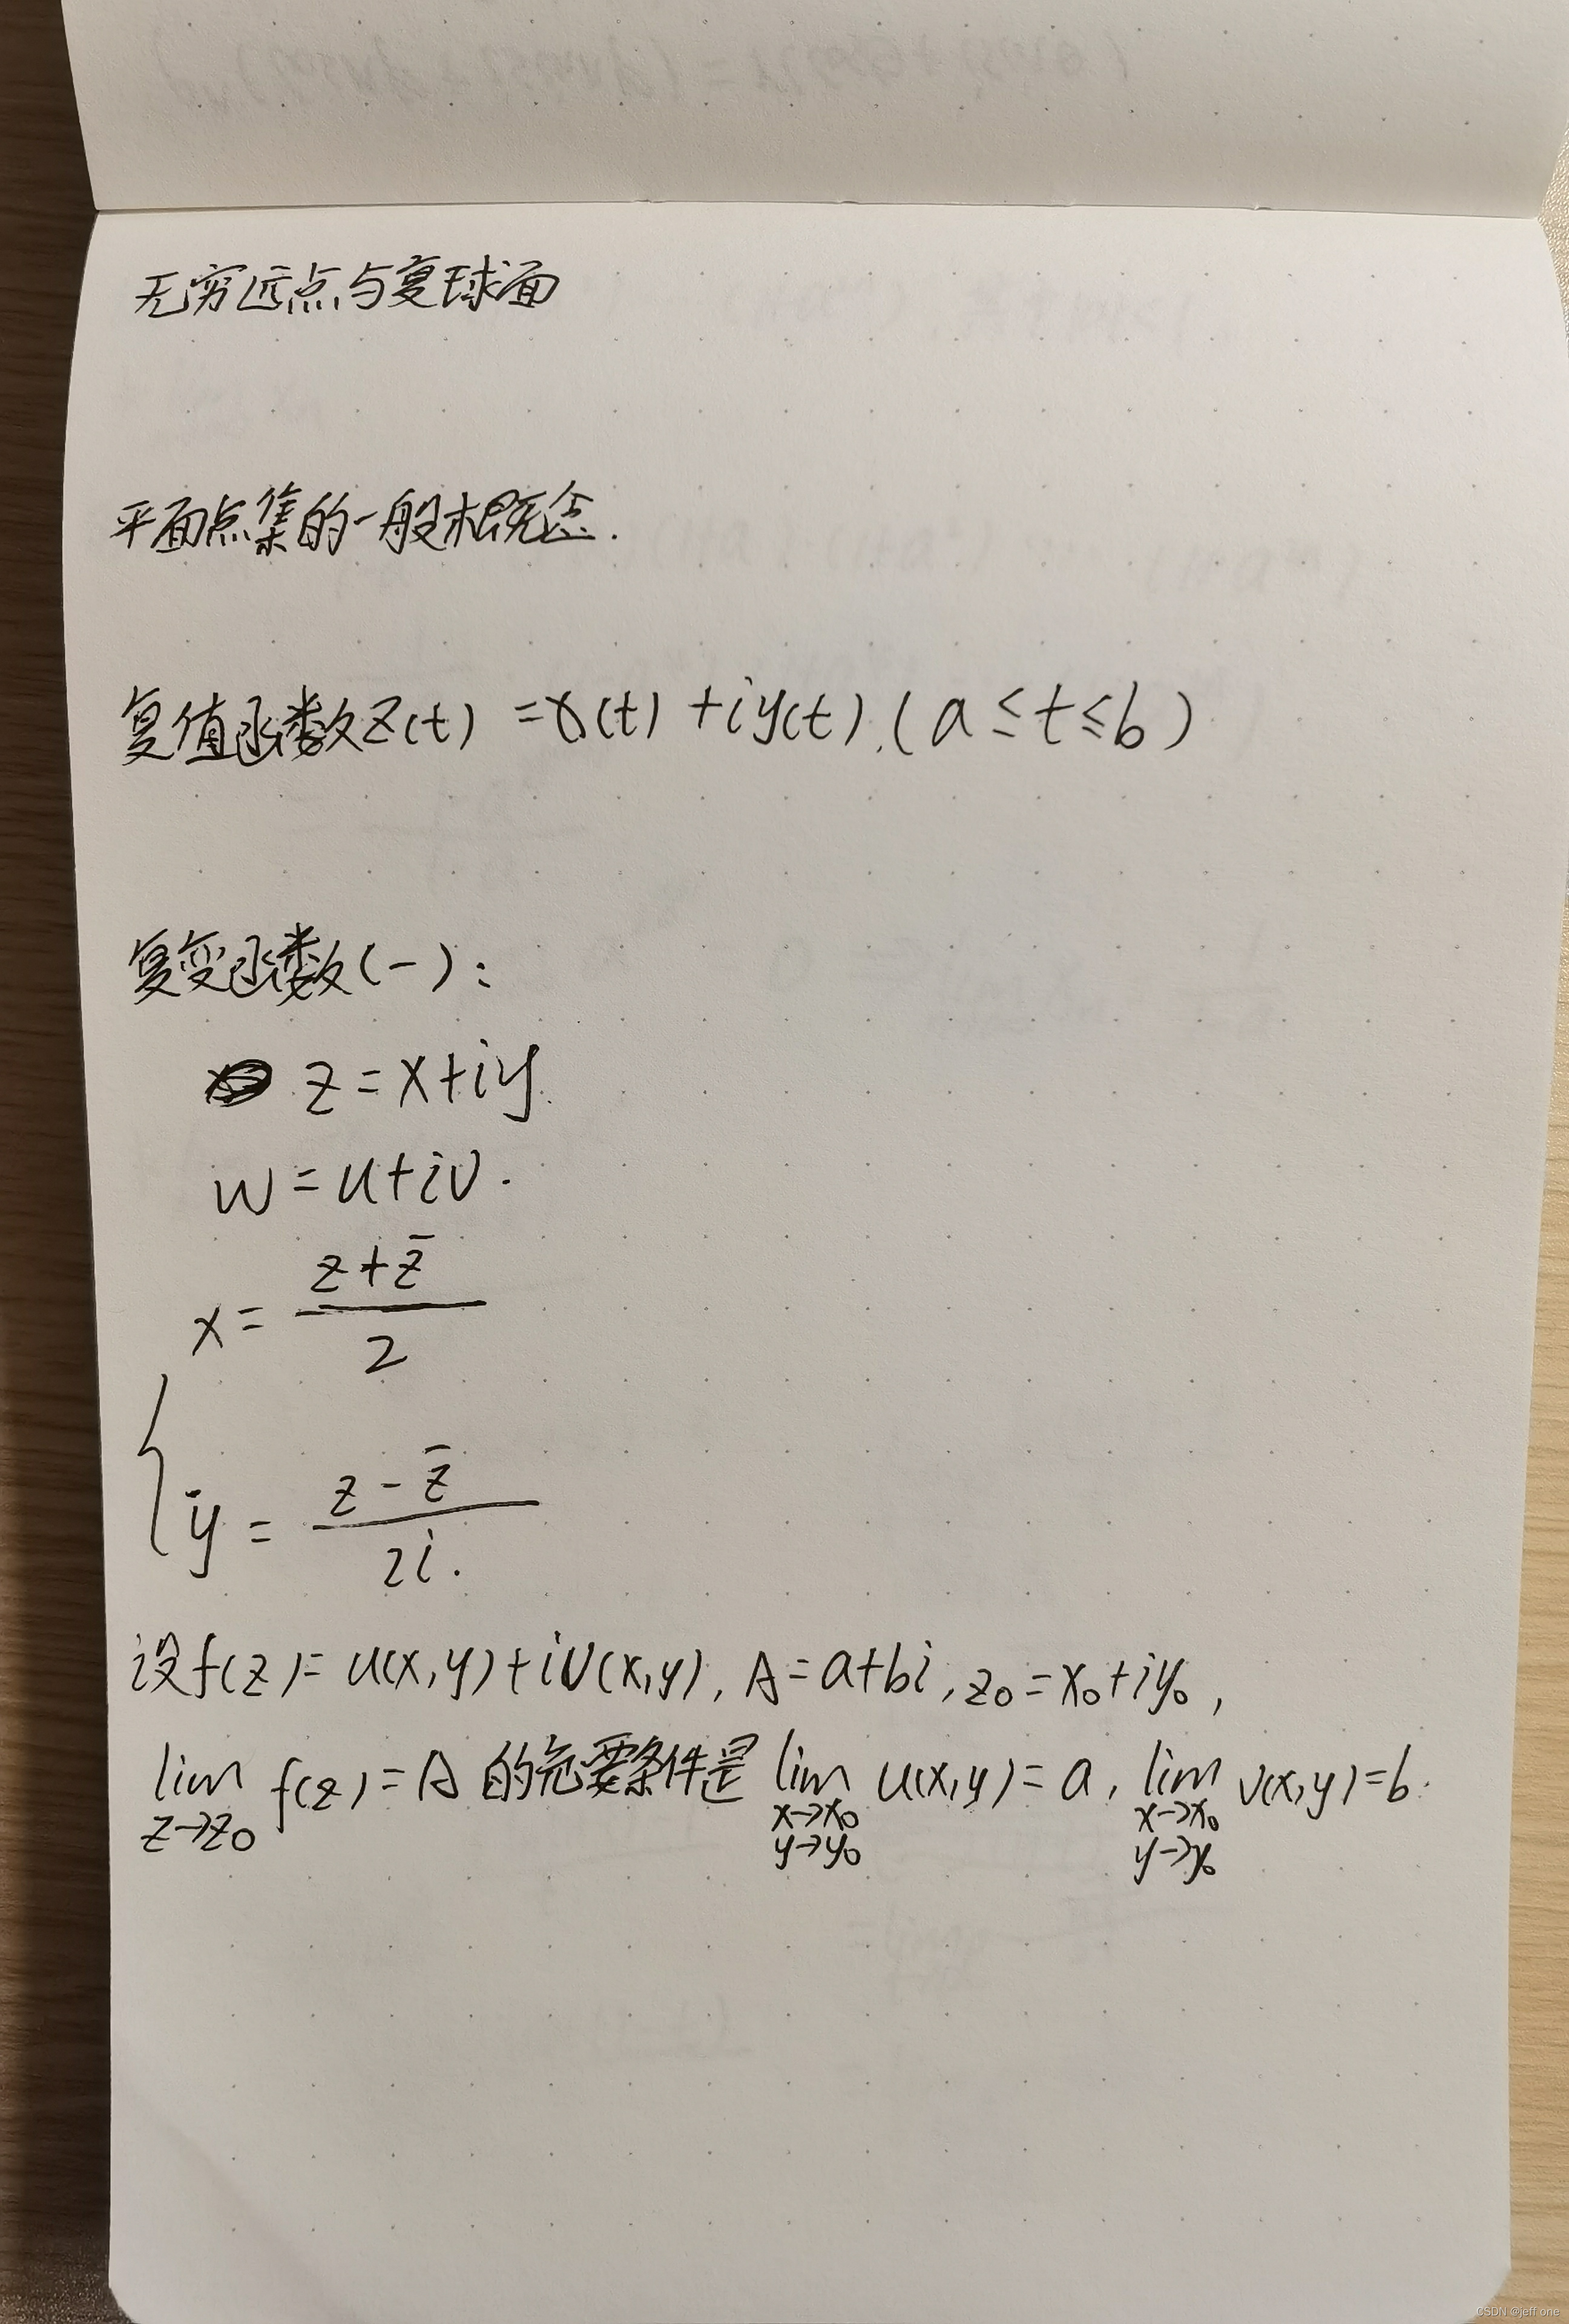 无穷远点与复球面
平面点集的一般概念.
复值函数z(t) = x(t) + iy(t), (a ≤ t ≤ b)
复变函数(一):
z = x + iy.
w = u + iv.
x = (z + z̄)/2
y = (z - z̄)/2i.
设f(z) = u(x,y) + iv(x,y), A = a + bi, z₀ = x₀ + iy₀,
lim f(z) = A 的充要条件是 lim u(x,y) = a, lim v(x,y) = b.
z→z₀ x→x₀ x→x₀
y→y₀ y→y₀
CSDN @jeff one